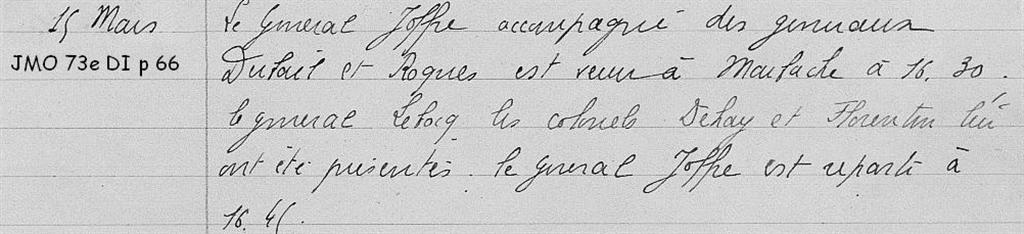 15 Mars
JMO 73e DI p 66
Le Général Joffre accompagné des généraux
Dubail et Roques est venu à Manfache à 16.30.
le général Lebocq les colonels Dehay et Florentin lui
ont été présentés. le Général Joffre est reparti à
16.45.